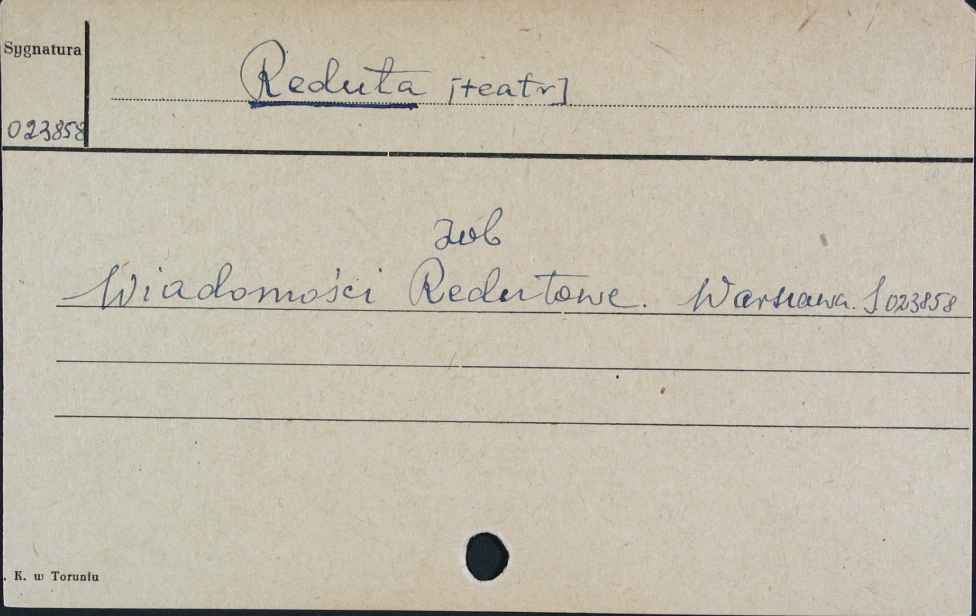 Sygnatura
Reduta [teatr]
023858
zob
Wiadomości Redutowe. Warszawa. S 023858
. K. w Toruniu